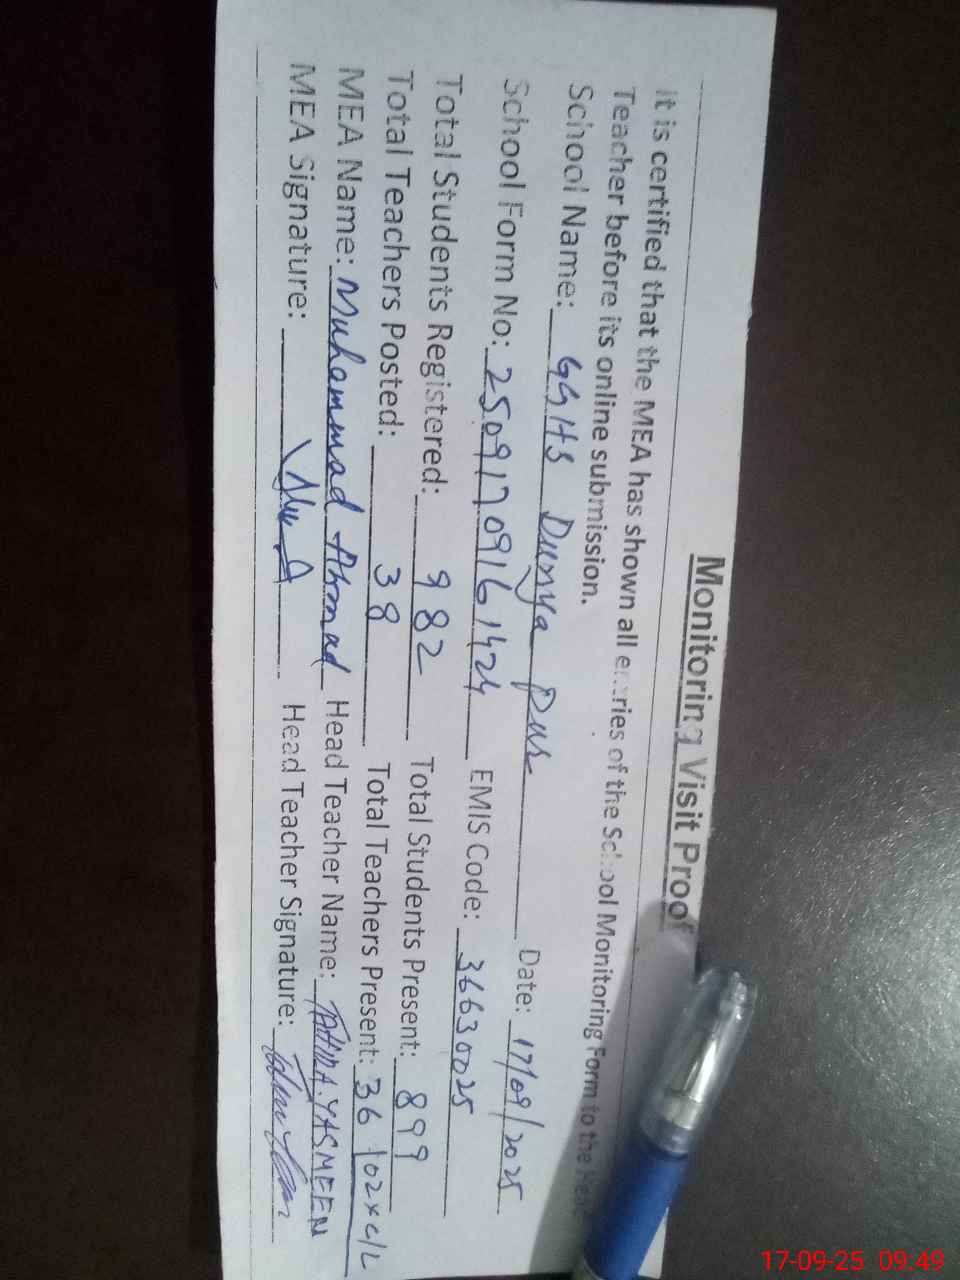 Monitoring Visit Proof
It is certified that the MEA has shown all entries of the School Monitoring Form to the Head
Teacher before its online submission.
School Name: GGHS Dunya Pur Date: 17/09/2025
School Form No: 25091709161424 EMIS Code: 36630025
Total Students Registered: 982 Total Students Present: 899
Total Teachers Posted: 38 Total Teachers Present: 36 + 02 x C/L
MEA Name: Muhammad Ahmad Head Teacher Name: TAHIRA YASMEEN
MEA Signature: Head Teacher Signature:
17-09-25 09:49